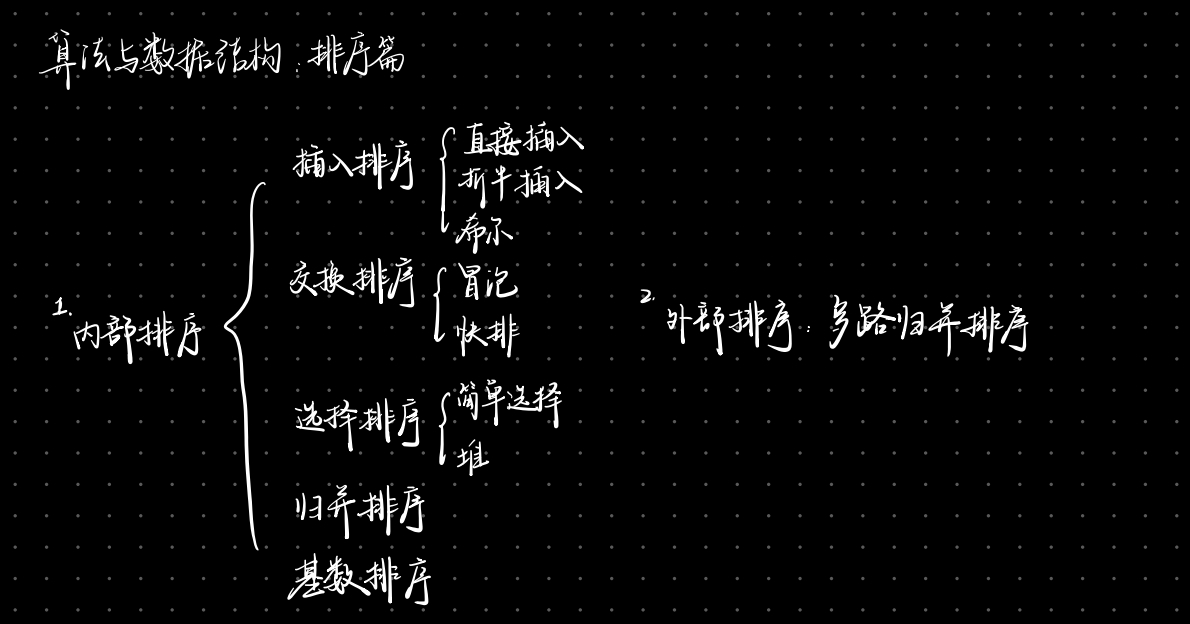 算法与数据结构：排序篇
1. 内部排序
插入排序
直接插入
折半插入
希尔
交换排序
冒泡
快排
选择排序
简单选择
堆
归并排序
基数排序
2. 外部排序：多路归并排序